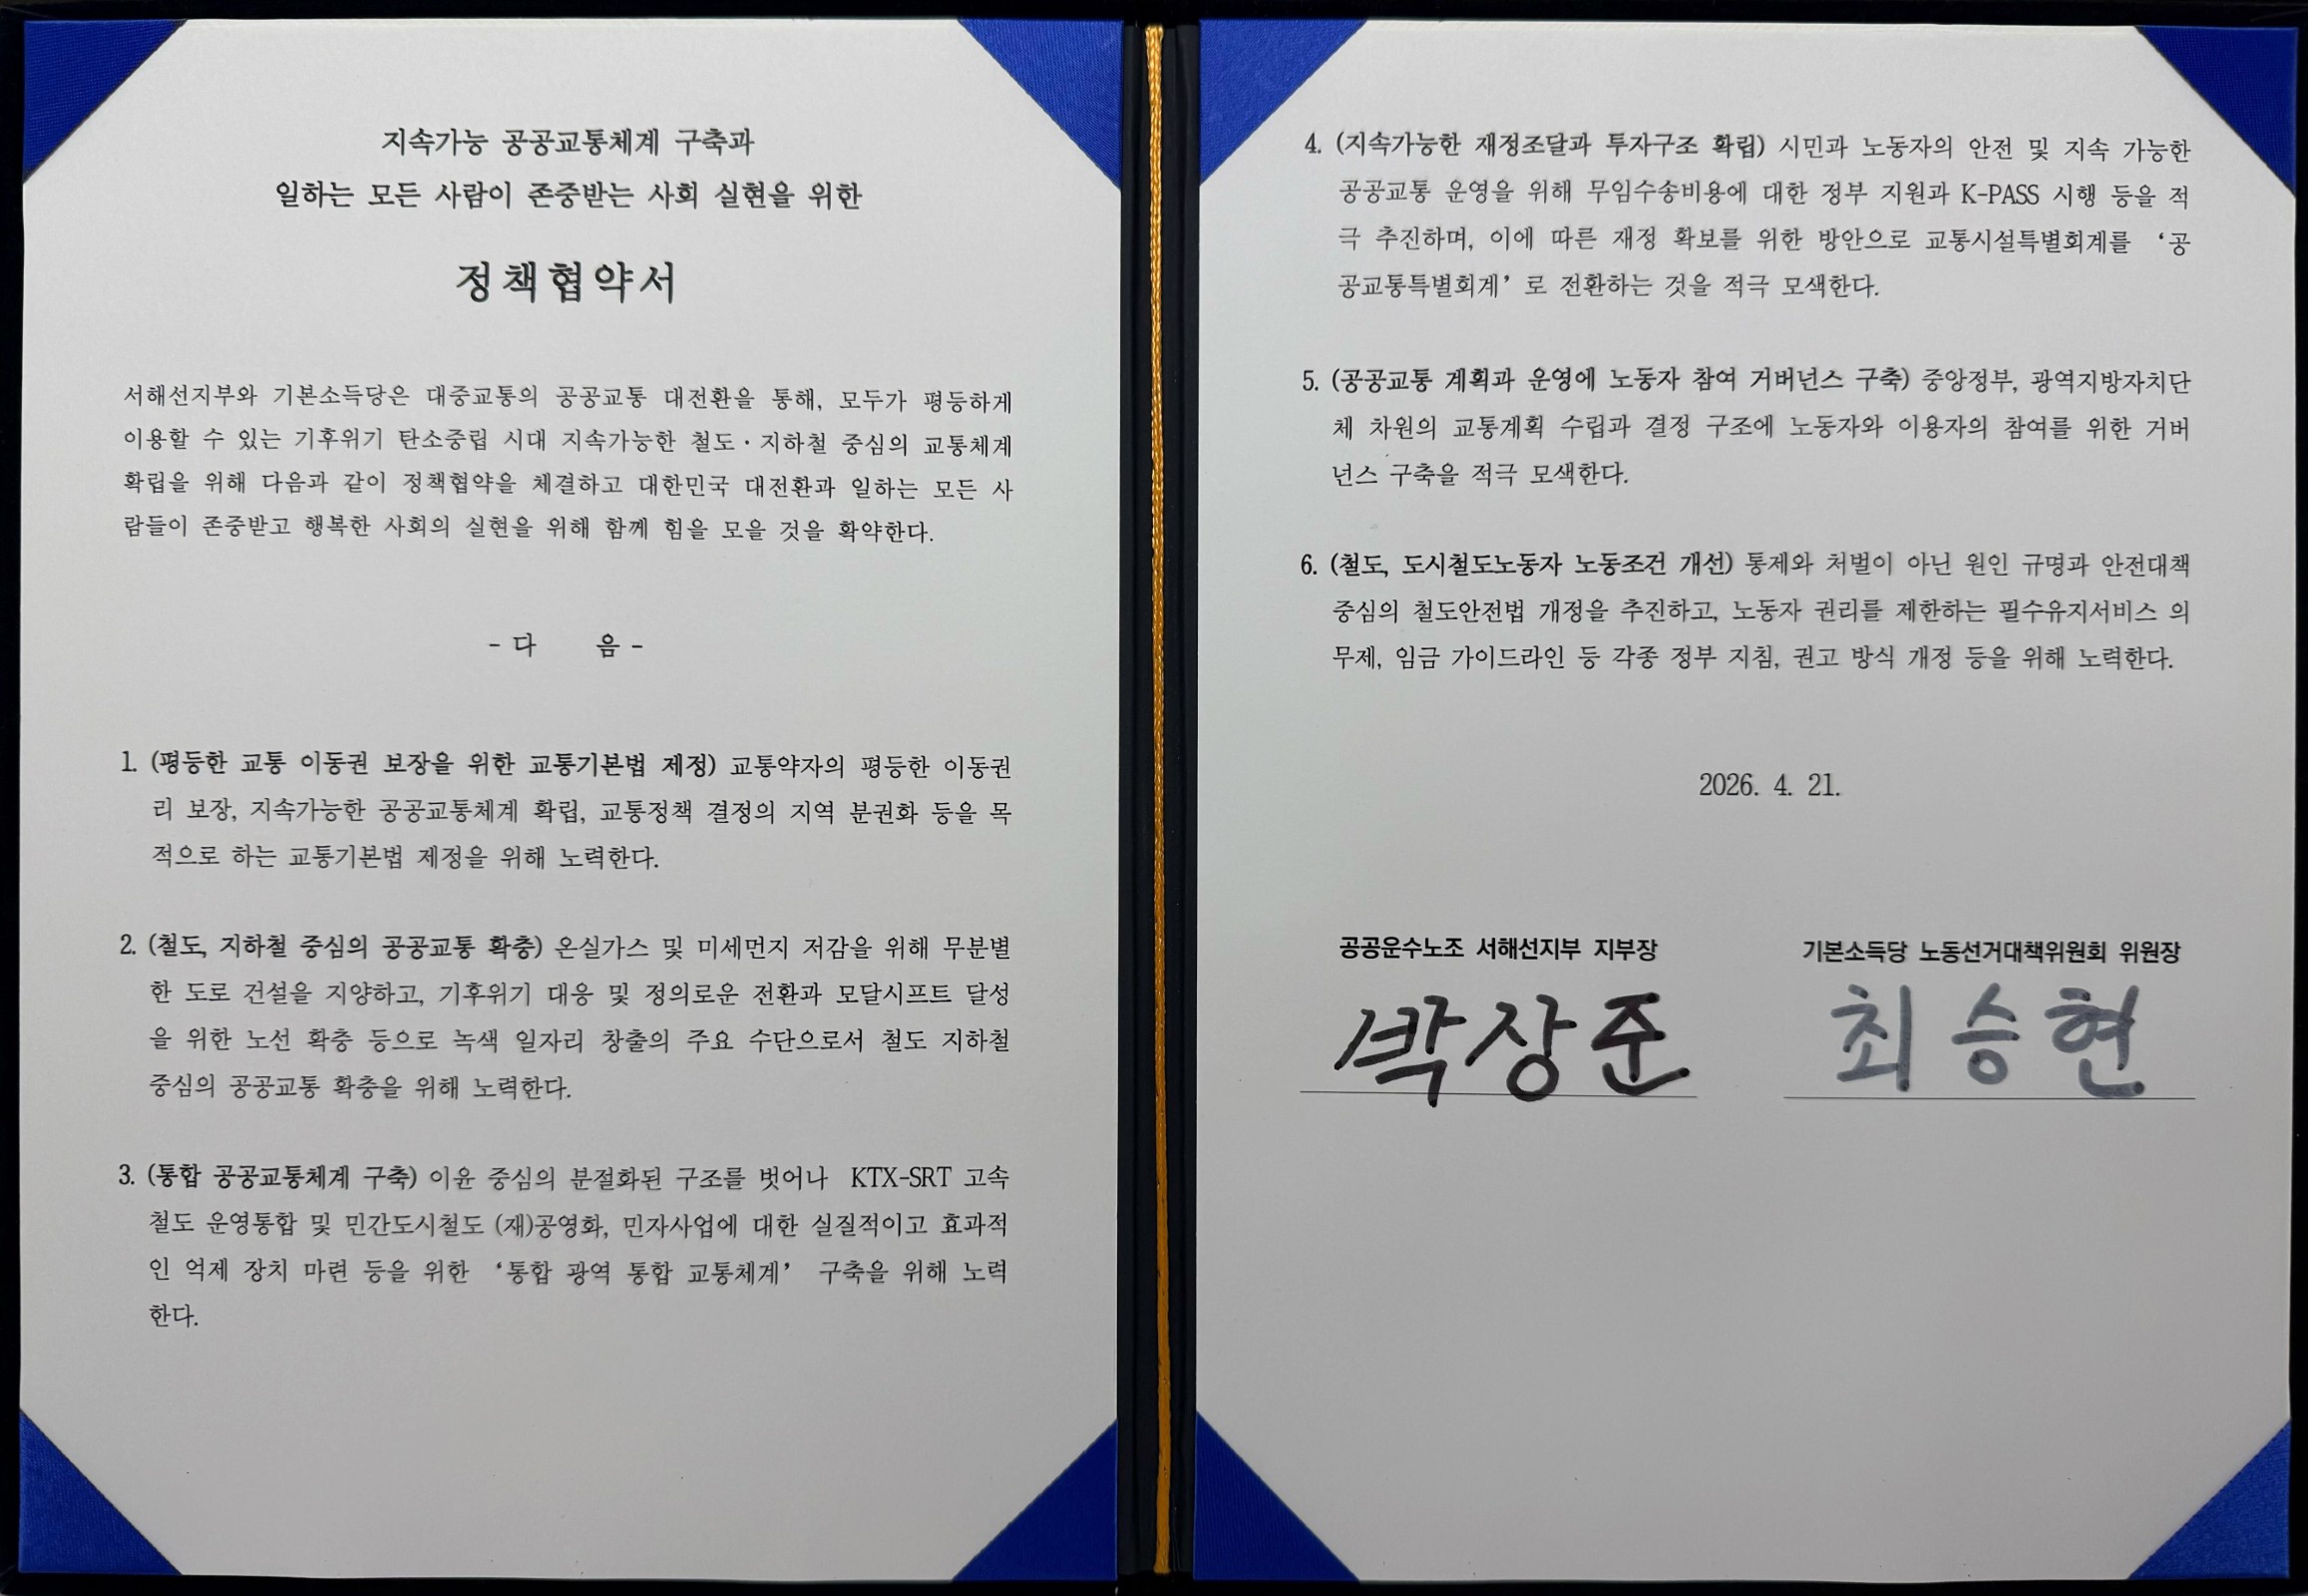 지속가능 공공교통체계 구축과
일하는 모든 사람이 존중받는 사회 실현을 위한
정책협약서
서해선지부와 기본소득당은 대중교통의 공공교통 대전환을 통해, 모두가 평등하게
이용할 수 있는 기후위기 탄소중립 시대 지속가능한 철도·지하철 중심의 교통체계
확립을 위해 다음과 같이 정책협약을 체결하고 대한민국 대전환과 일하는 모든 사
람들이 존중받고 행복한 사회의 실현을 위해 함께 힘을 모을 것을 확약한다.
- 다 음 -
1. (평등한 교통 이동권 보장을 위한 교통기본법 제정) 교통약자의 평등한 이동권
리 보장, 지속가능한 공공교통체계 확립, 교통정책 결정의 지역 분권화 등을 목
적으로 하는 교통기본법 제정을 위해 노력한다.
2. (철도, 지하철 중심의 공공교통 확충) 온실가스 및 미세먼지 저감을 위해 무분별
한 도로 건설을 지양하고, 기후위기 대응 및 정의로운 전환과 모달시프트 달성
을 위한 노선 확충 등으로 녹색 일자리 창출의 주요 수단으로서 철도 지하철
중심의 공공교통 확충을 위해 노력한다.
3. (통합 공공교통체계 구축) 이윤 중심의 분절화된 구조를 벗어나 KTX-SRT 고속
철도 운영통합 및 민간도시철도 (재)공영화, 민자사업에 대한 실질적이고 효과적
인 억제 장치 마련 등을 위한 ‘통합 광역 통합 교통체계’ 구축을 위해 노력
한다.
4. (지속가능한 재정조달과 투자구조 확립) 시민과 노동자의 안전 및 지속 가능한
공공교통 운영을 위해 무임수송비용에 대한 정부 지원과 K-PASS 시행 등을 적
극 추진하며, 이에 따른 재정 확보를 위한 방안으로 교통시설특별회계를 ‘공
공교통특별회계’ 로 전환하는 것을 적극 모색한다.
5. (공공교통 계획과 운영에 노동자 참여 거버넌스 구축) 중앙정부, 광역지방자치단
체 차원의 교통계획 수립과 결정 구조에 노동자와 이용자의 참여를 위한 거버
넌스 구축을 적극 모색한다.
6. (철도, 도시철도노동자 노동조건 개선) 통제와 처벌이 아닌 원인 규명과 안전대책
중심의 철도안전법 개정을 추진하고, 노동자 권리를 제한하는 필수유지서비스 의
무제, 임금 가이드라인 등 각종 정부 지침, 권고 방식 개정 등을 위해 노력한다.
2026. 4. 21.
공공운수노조 서해선지부 지부장
박상준
기본소득당 노동선거대책위원회 위원장
최승현